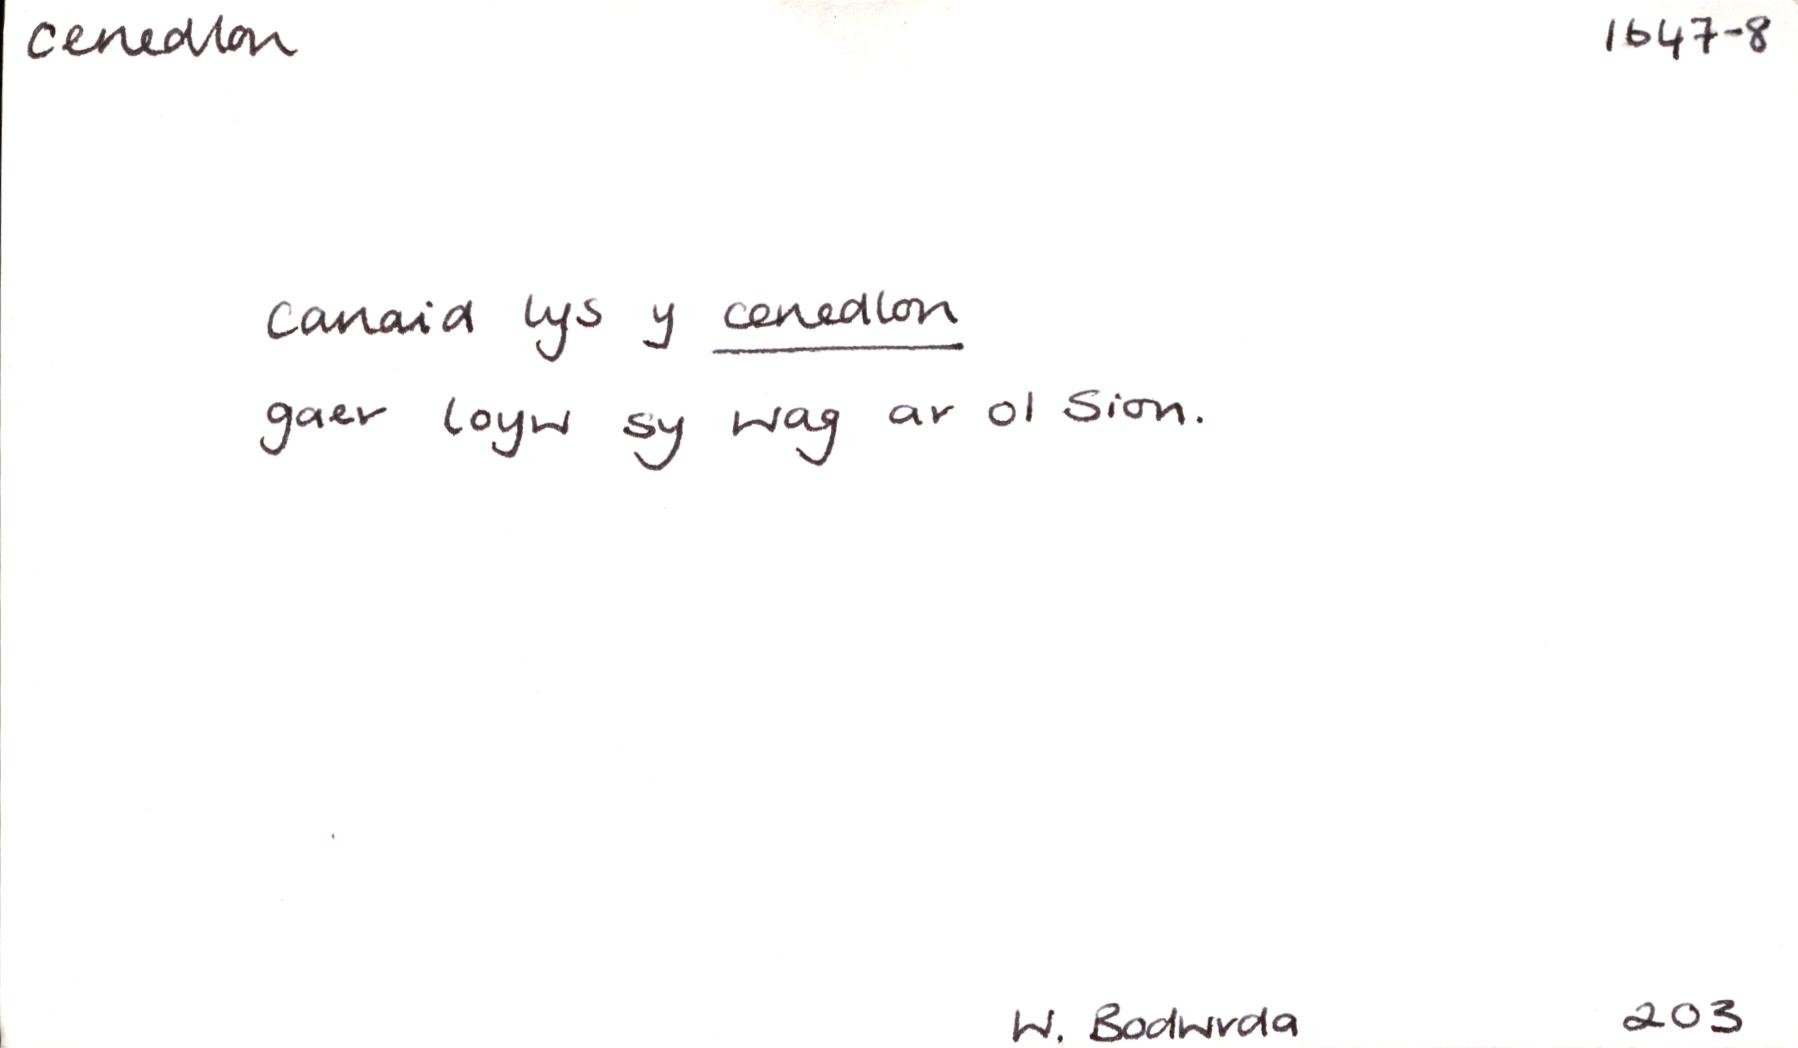 cenedlon 1647-8
canaid lys y cenedlon
gaer loyw sy wag ar ol Sion.
W. Bodwrda 203